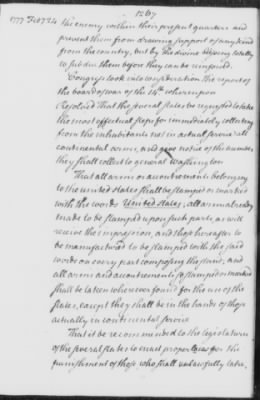 1267
1777 Feb 24 the enemy within their present quarters and
prevent them from drawing support of any kind
from the country, but by the divine blessing totally
to subdue them before they can be reinforced.
Congress took into consideration the report of the
board of war of the 14th whereupon
Resolved That the several states be requested to take
the most effectual steps for immediately collecting
from the inhabitants not in actual service all
continental arms, and give notice of the number
they shall collect to general Washington
That all arms or accoutrements belonging
to the united states shall be stamped or marked
with the words United States, all arms already
made to be stamped upon such parts, as will
receive the impression, and those hereafter to
be manufactured to be stamped with the said
words on every part composing the stand; and
all arms and accoutrements so stamped or marked
shall be taken wherever found for the use of the
states, except they shall be in the hands of those
actually in continental service
That it be recommended to the legislatures
of the several states to enact proper laws for the
punishment of those who shall unlawfully take,